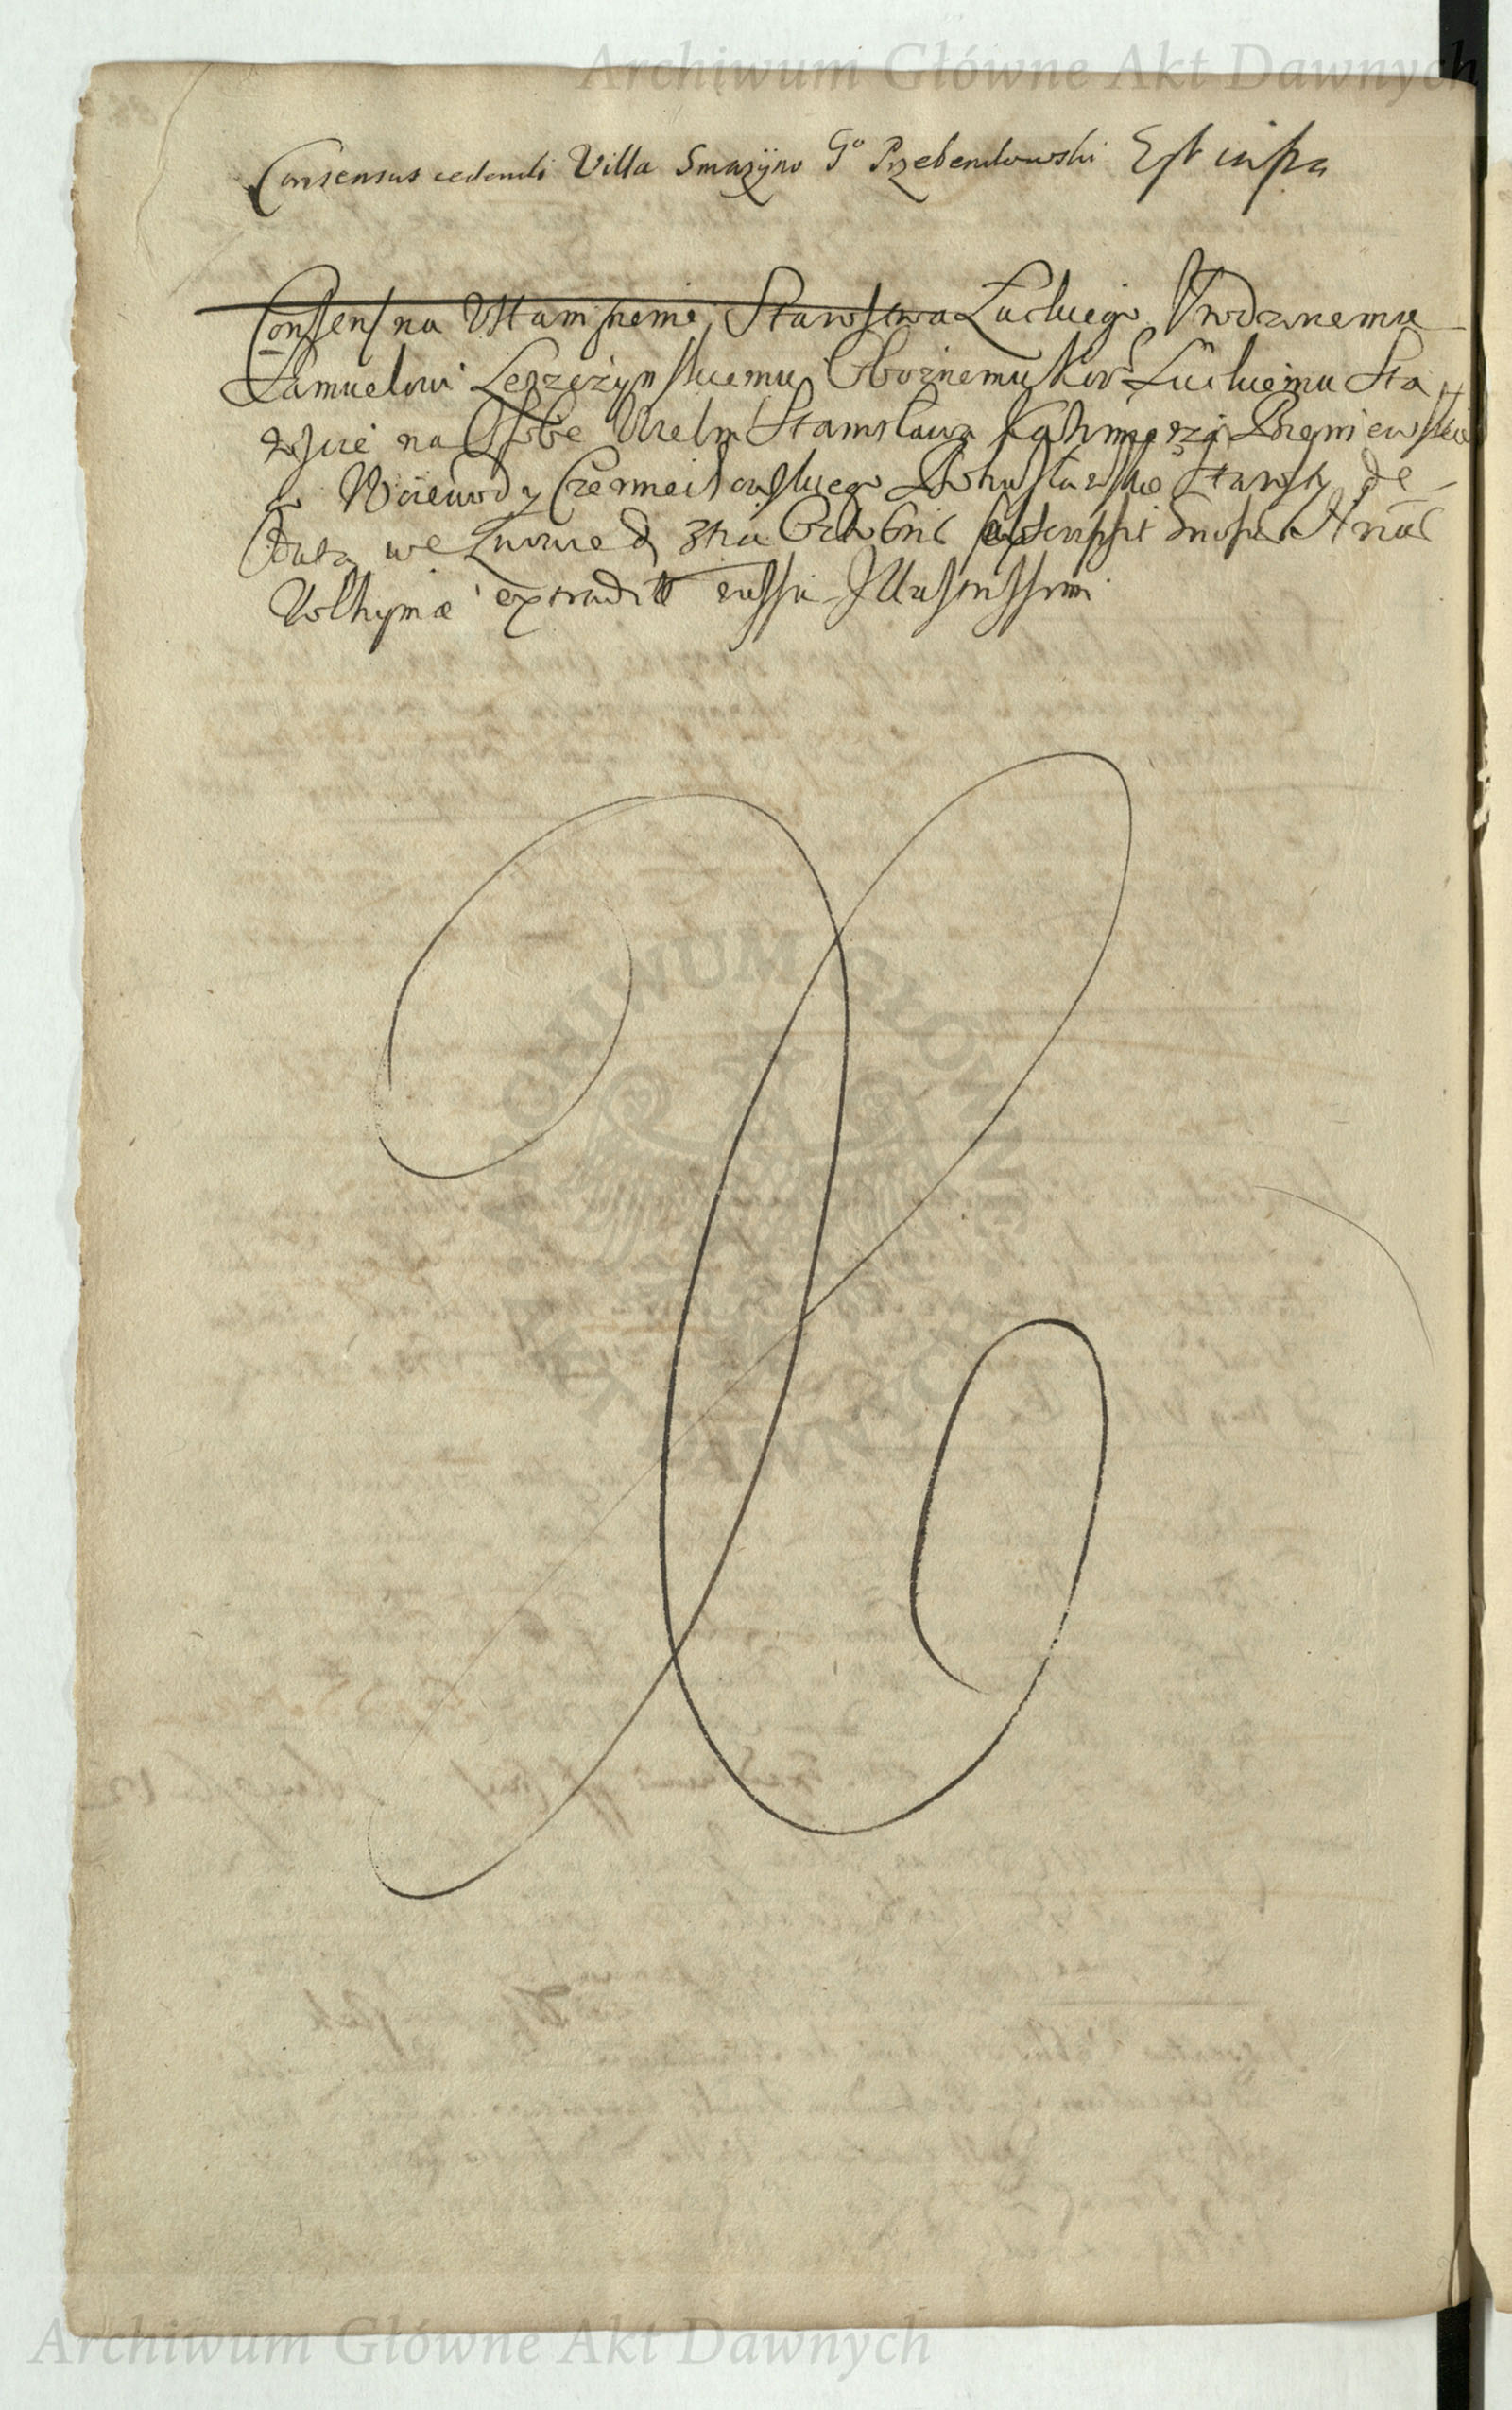 Archiwum Główne Akt Dawnych
Consensus cedendi Villa Smazyno Go Przebendowski Est infra
Consens na Ustąmpienie Starostwa Łuckiego Vrodzonemu
Samuelowi Leszczynskiemu Oboznemu Kor Łuckiemu Sta
roscie na Osobe Wielm Stanisława Kazimierza Bieniewskie
go Woiewody Czerniechowskiego Bohusławskie Starosty de
Data we Lwowie d
Volhyniæ extradit iussu Illustrissimi
ARCHIWUM GŁÓWNE AKT DAWNYCH
Archiwum Główne Akt Dawnych